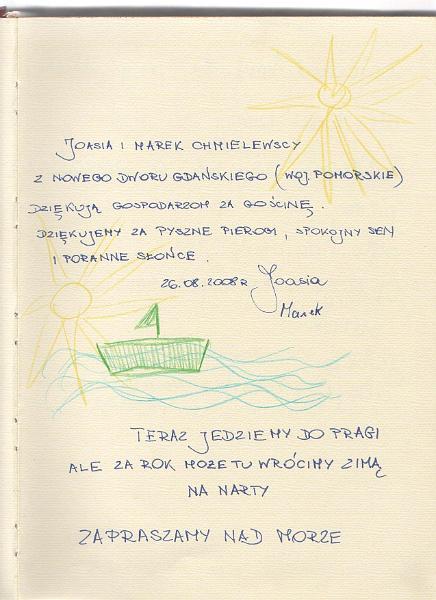 JOASIA I MAREK CHMIELEWSCY
Z NOWEGO DWORU GDAŃSKIEGO (WOJ POMORSKIE)
DZIĘKUJĄ GOSPODARZOM ZA GOŚCINĘ.
DZIĘKUJEMY ZA PYSZNE PIEROGI, SPOKOJNY SEN
I PORANNE SŁOŃCE.
26.08.2008r Joasia
Marek
TERAZ JEDZIEMY DO PRAGI
ALE ZA ROK MOŻE TU WRÓCIMY ZIMĄ
NA NARTY
ZAPRASZAMY NAD MORZE